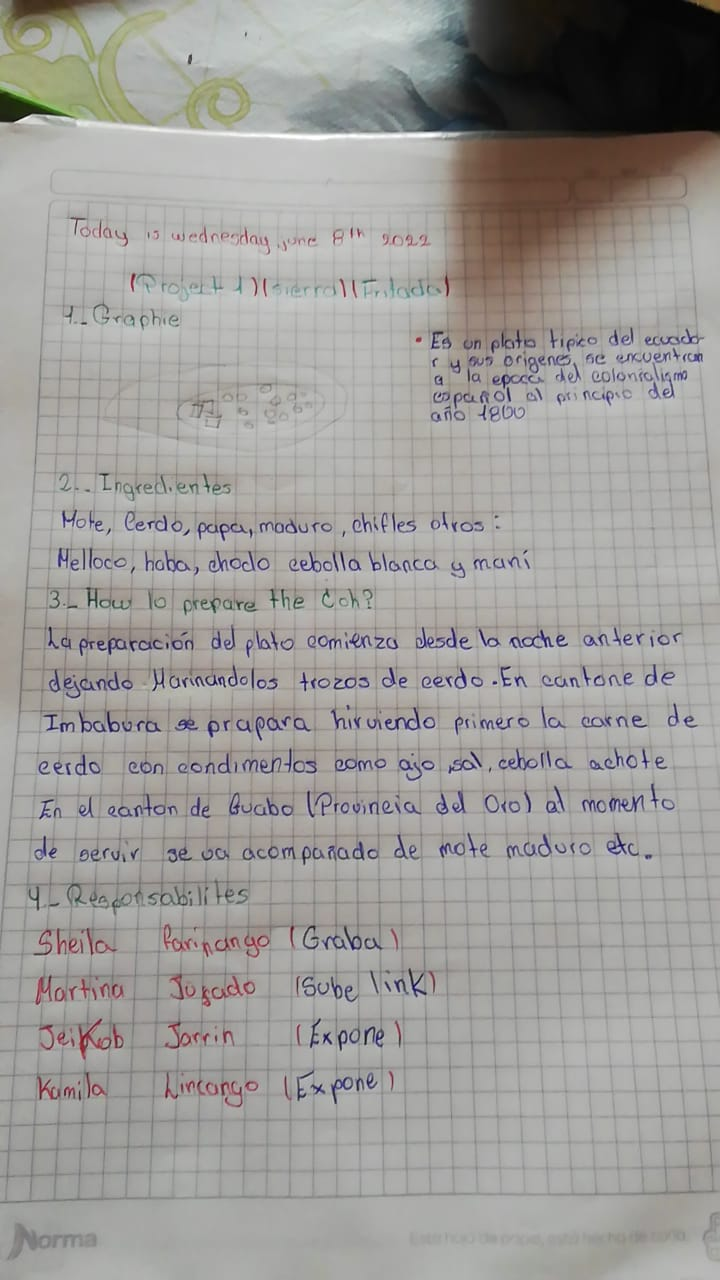 Today is wednesday, june 8th 2022
(Project 1)(sierra)(Fritada)
1._ Graphie
• Es un plato tipico del ecuado-
r y sus origenes, se encuentran
a la epoca del colonialismo
español al principio del
año 1800
2._ Ingredientes
Mote, Cerdo, papa, maduro, chifles otros:
Melloco, haba, choclo cebolla blanca y maní
3._ How to prepare the
La preparación del plato comienza desde la noche anterior
dejando Marinandolos trozos de cerdo. En cantone de
Imbabura se prapara hirviendo primero la carne de
cerdo con condimentos como ajo, sal, cebolla achote
En el canton de Guabo (Provincia del Oro) al momento
de servir se va acompañado de mote maduro etc.
4_ Responsabilites
Sheila Farinango (Graba)
Martina (Sube link)
Jeikob Jarrin (Expone)
Kamila Lincango (Expone)
Norma